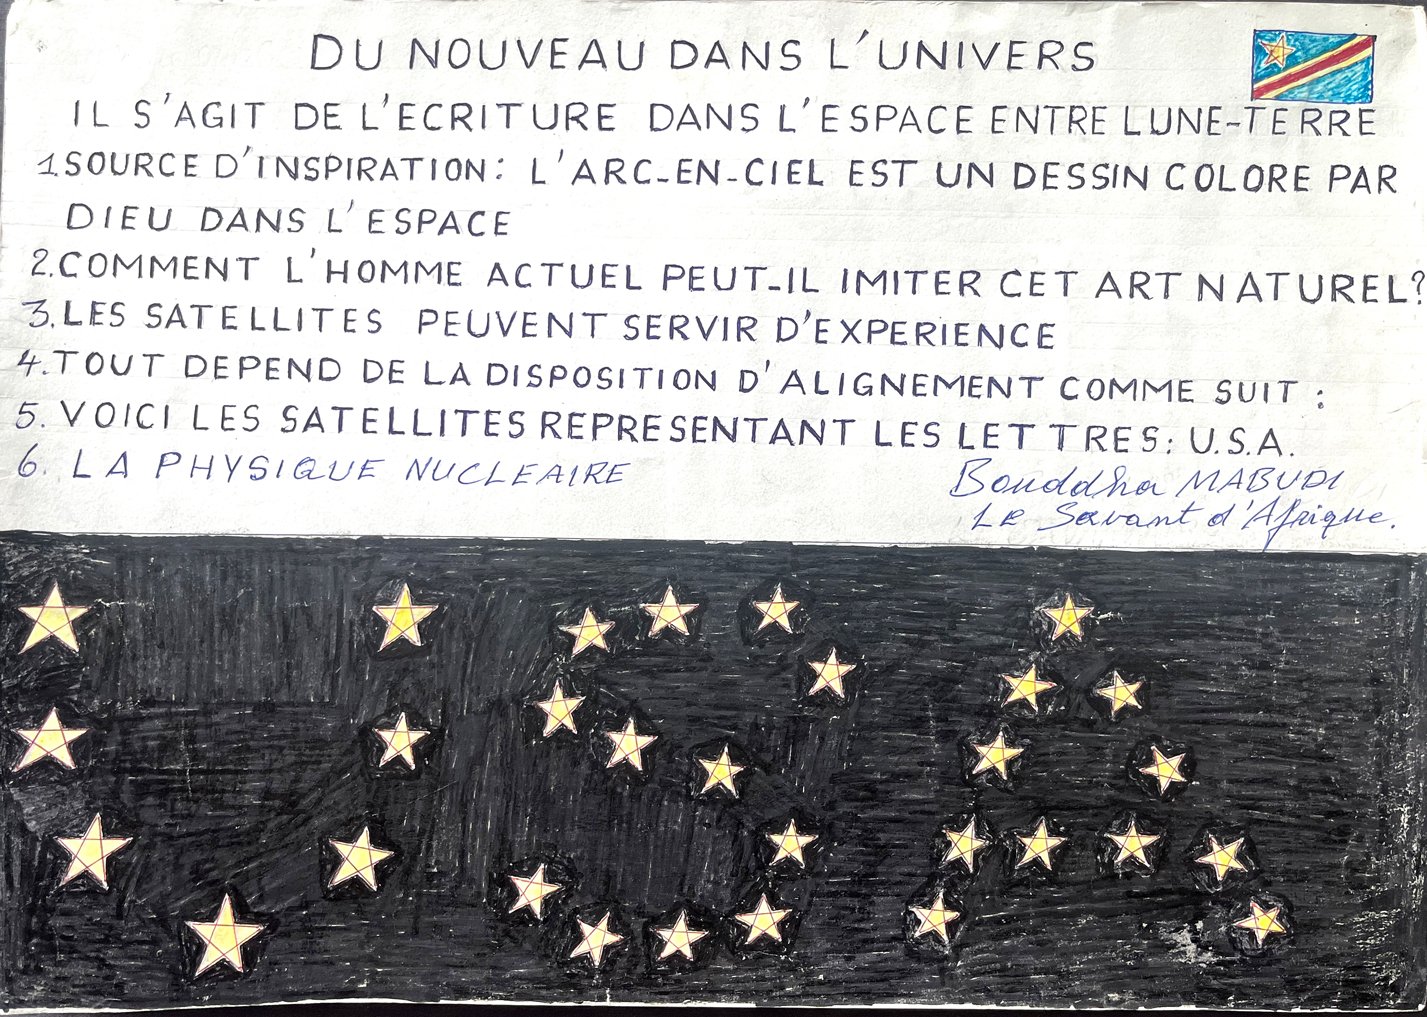 DU NOUVEAU DANS L'UNIVERS
IL S'AGIT DE L'ECRITURE DANS L'ESPACE ENTRE LUNE-TERRE
1. SOURCE D'INSPIRATION: L'ARC-EN-CIEL EST UN DESSIN COLORE PAR
DIEU DANS L'ESPACE
2. COMMENT L'HOMME ACTUEL PEUT-IL IMITER CET ART NATUREL?
3. LES SATELLITES PEUVENT SERVIR D'EXPERIENCE
4. TOUT DEPEND DE LA DISPOSITION D'ALIGNEMENT COMME SUIT :
5. VOICI LES SATELLITES REPRESENTANT LES LETTRES: U.S.A.
6. LA PHYSIQUE NUCLEAIRE
Bouddha MABUDI
Le Savant d'Afrique.
USA